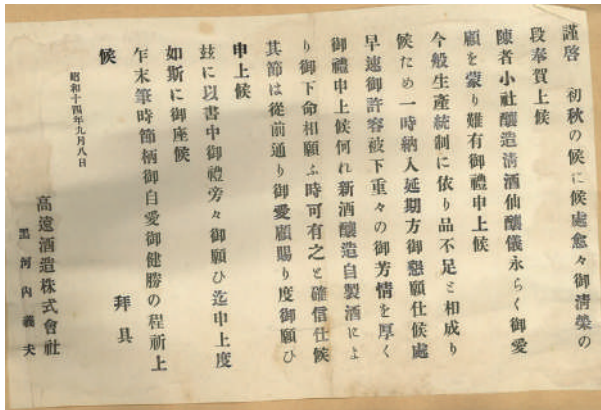 謹啓 初秋の候に候處愈々御淸榮の
段奉賀上候
陳者小社釀造淸酒仙釀儀永らく御愛
顧を蒙り難有御禮申上候
今般生產統制に依り品不足と相成り
候ため一時納入延期方御懇願仕候處
早速御許容被下重々の御芳情を厚く
御禮申上候何れ新酒釀造自製酒によ
り御下命相願ふ時可有之と確信仕候
其節は從前通り御愛顧賜り度御願ひ
申上候
玆に以書中御禮旁々御願ひ迄申上度
如斯に御座候
乍末筆時節柄御自愛御健勝の程祈上
候
拜具
昭和十四年九月八日
高遠酒造株式會社
黑河內義夫